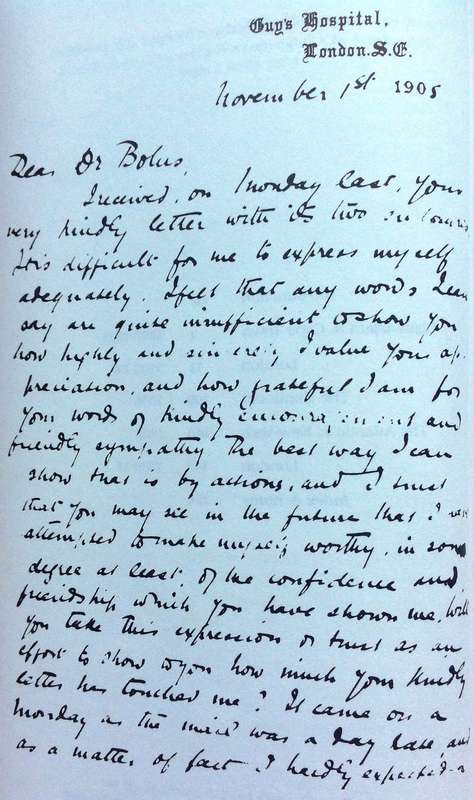 Guy's Hospital,
London. S.E.
November 1st 1905
Dear Dr Bolus,
I received, on Monday last, your
very kindly letter with its two
It is difficult for me to express myself
adequately. I feel that any words I can
say are quite insufficient to show you
how highly and sincerely I value your ap-
preciation, and how grateful I am for
your words of kindly encouragement and
friendly sympathy The best way I can
show that is by actions, and I trust
that you may see in the future that I have
attempted to make myself worthy, in some
degree at least, of the confidence and
friendship which you have shown me. Will
you take this expression of trust as an
effort to show to you how much your kindly
letter has touched me? It came on a
Monday as the mail was a day late, and
as a matter of fact I hardly expected a